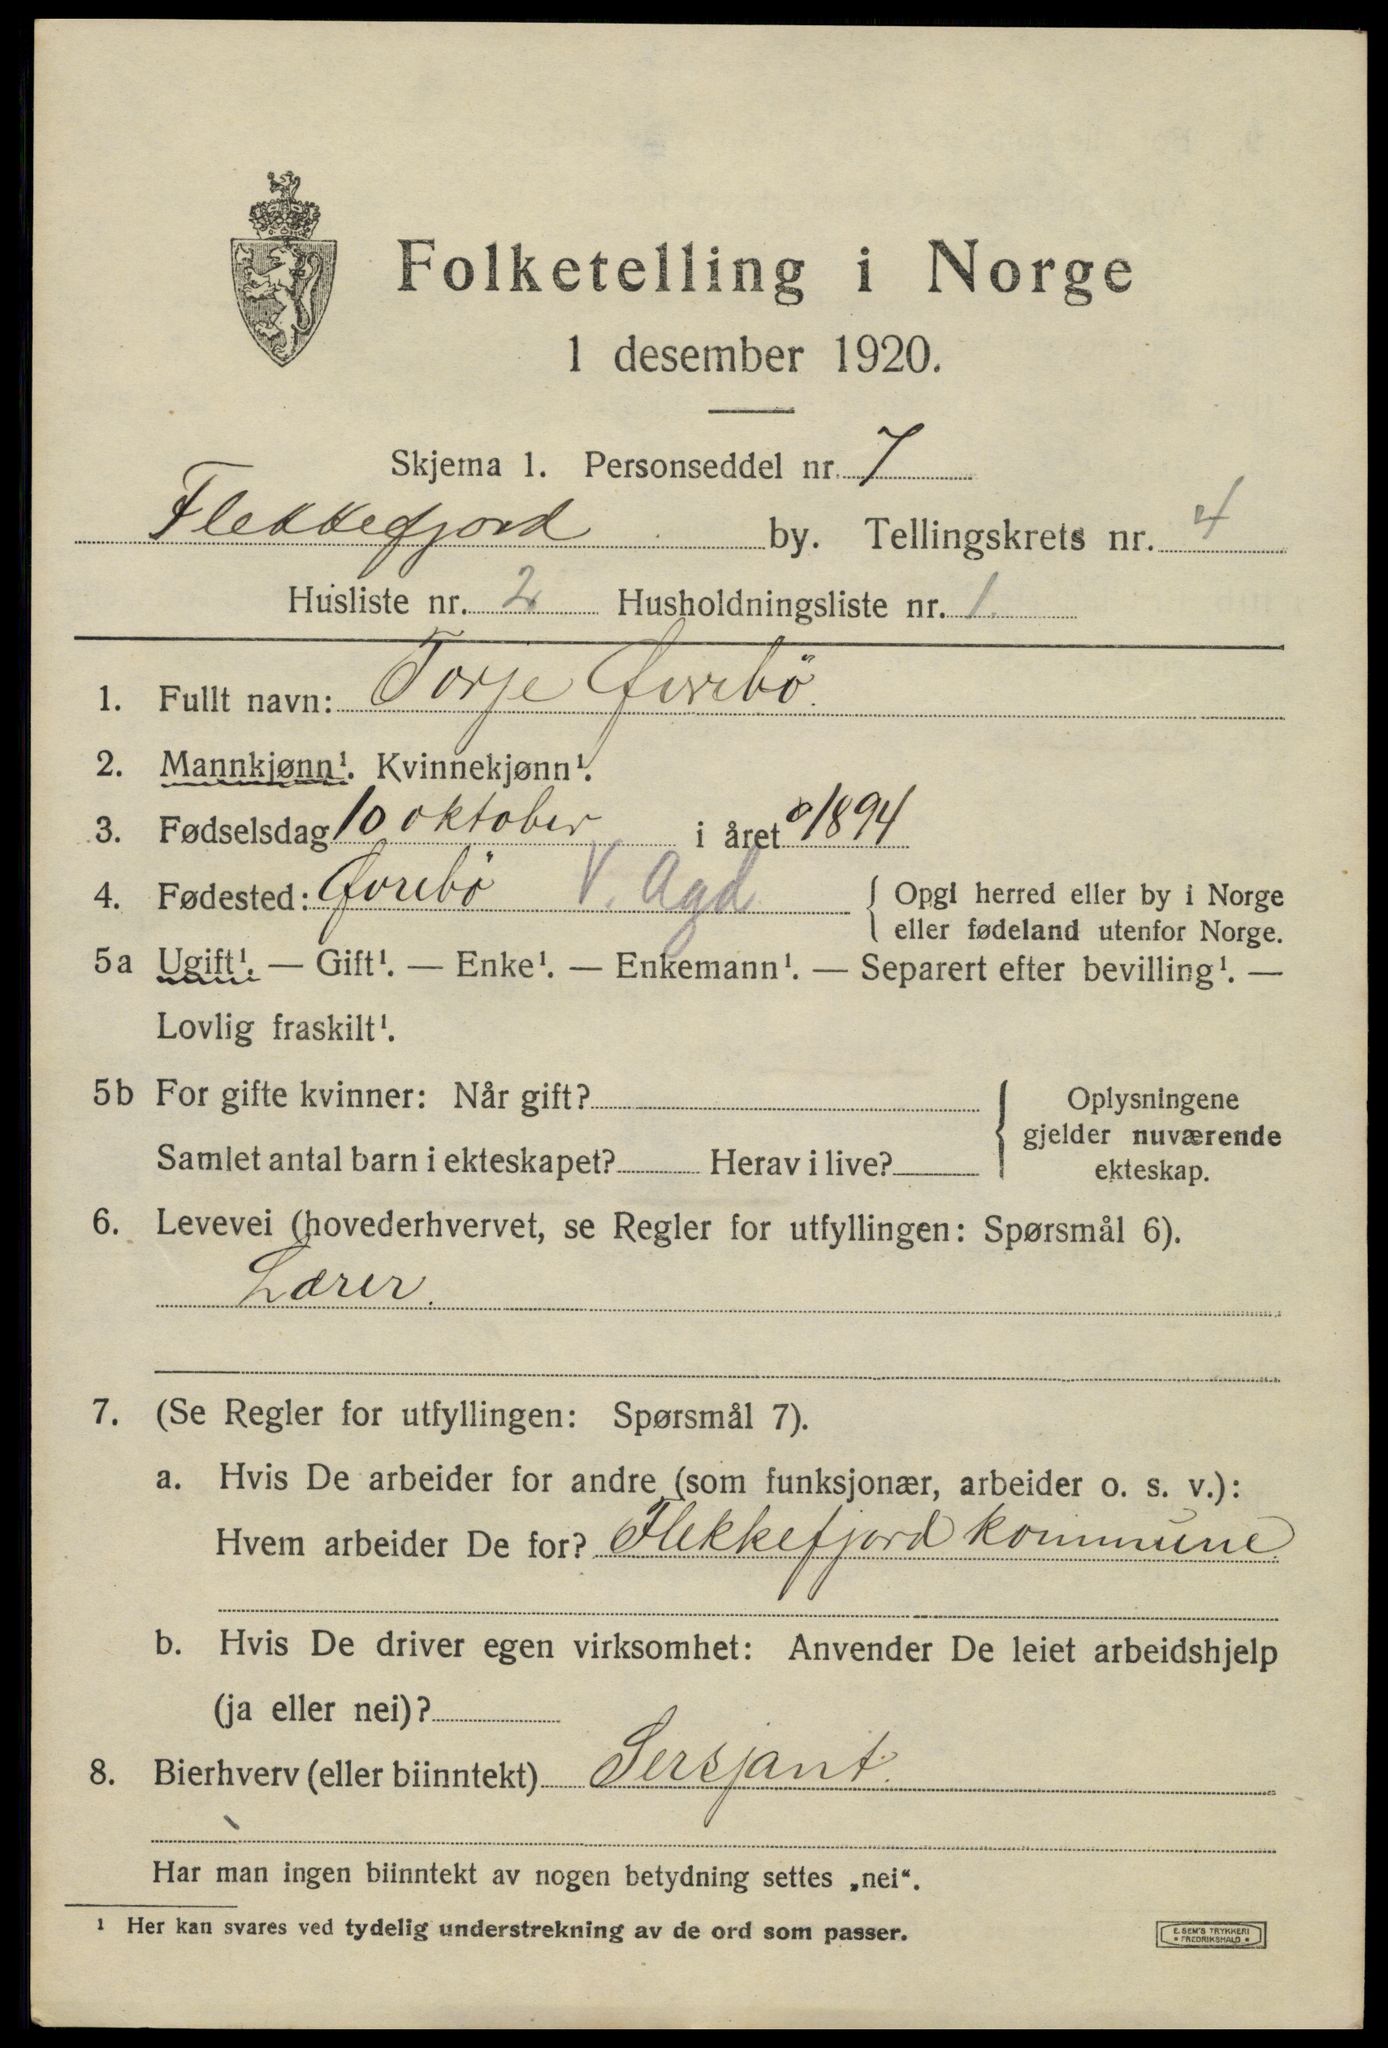 Folketelling i Norge
1 desember 1920.
Skjema 1. Personseddel nr. 7
Flekkefjord by. Tellingskrets nr. 4
Husliste nr. 2 Husholdningsliste nr. 1.
1. Fullt navn: Torje Øvrebö.
2. Mannkjønn¹. Kvinnekjønn¹.
3. Fødselsdag 10 oktober i året 1894
4. Fødested: Øvrebö V. Agd { Opgi herred eller by i Norge
eller fødeland utenfor Norge.
5a Ugift¹. — Gift¹. — Enke¹. — Enkemann¹. — Separert efter bevilling¹. —
Lovlig fraskilt¹.
5b For gifte kvinner: Når gift? } Oplysningene
gjelder nuværende
Samlet antal barn i ekteskapet? Herav i live? ekteskap.
6. Levevei (hovederhvervet, se Regler for utfyllingen: Spørsmål 6).
Lærer.
7. (Se Regler for utfyllingen: Spørsmål 7).
a. Hvis De arbeider for andre (som funksjonær, arbeider o. s. v.):
Hvem arbeider De for? Flekkefjord kommune.
b. Hvis De driver egen virksomhet: Anvender De leiet arbeidshjelp
(ja eller nei)?
8. Bierhverv (eller biinntekt) Sersjant.
Har man ingen biinntekt av nogen betydning settes „nei".
¹ Her kan svares ved tydelig understrekning av de ord som passer.
E. SEM'S TRYKKERI
FREDRIKSHALD